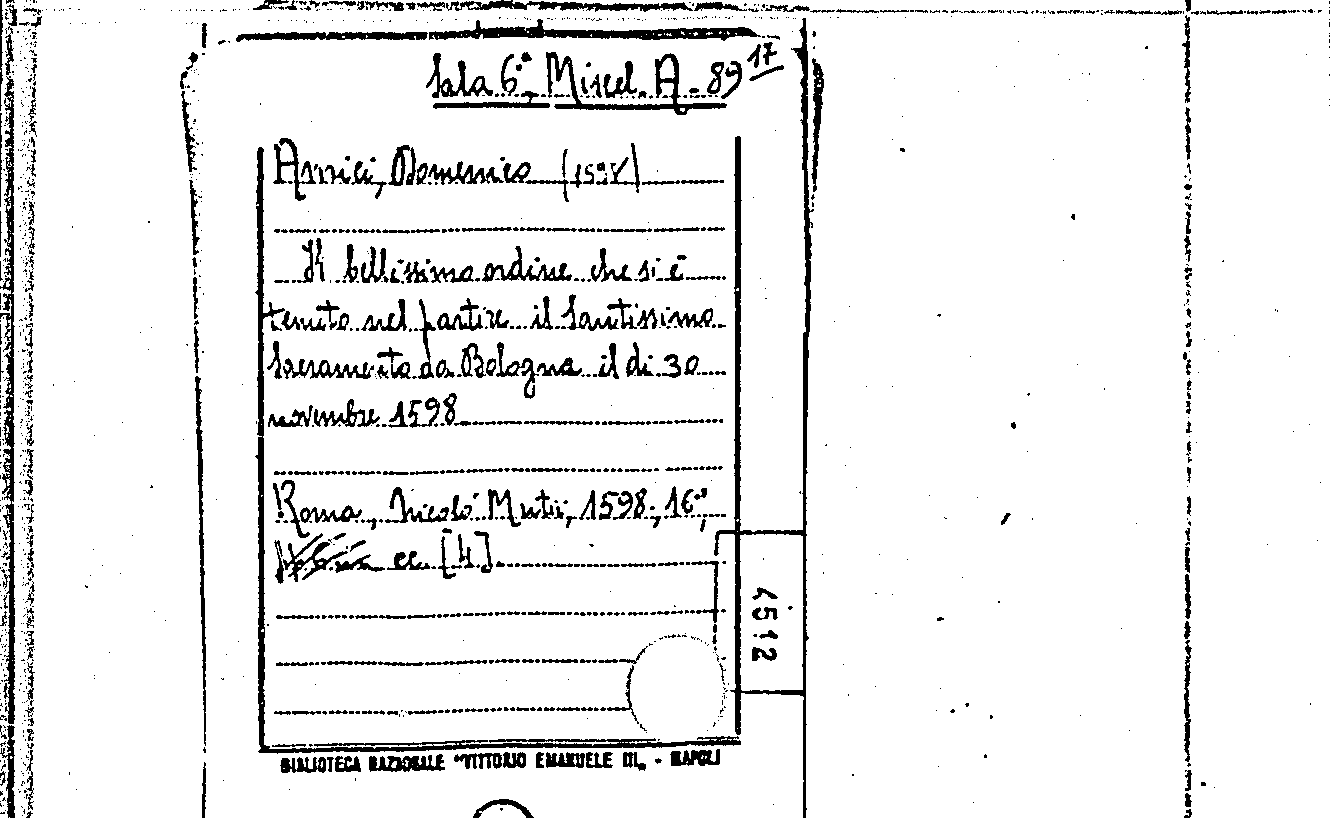 Sala 6ª, Miscel. A. 89 17
Amici, Domenico (1598)
Il bellissimo ordine che si è
tenuto nel partire il Santissimo
Sacramento da Bologna il di 30
novembre 1598
Roma, Nicolò Mutii, 1598, 16°,
cc. [4].
4512
BIBLIOTECA NAZIONALE "VITTORIO EMANUELE III„ - NAPOLI